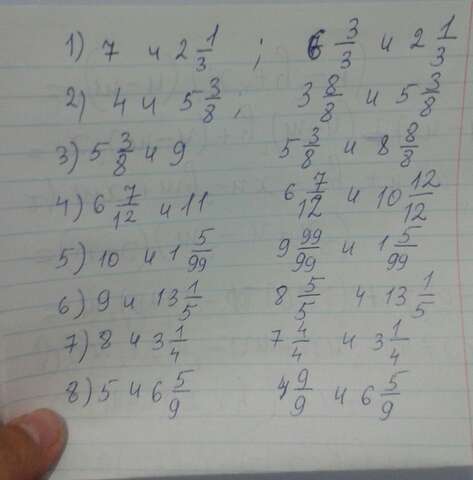 1) 7 и 2 1/3 ; 6 3/3 и 2 1/3
2) 4 и 5 3/8 ; 3 8/8 и 5 3/8
3) 5 3/8 и 9 5 3/8 и 8 8/8
4) 6 7/12 и 11 6 7/12 и 10 12/12
5) 10 и 1 5/99 9 99/99 и 1 5/99
6) 9 и 13 1/5 8 5/5 и 13 1/5
7) 8 и 3 1/4 7 4/4 и 3 1/4
8) 5 и 6 5/9 4 9/9 и 6 5/9